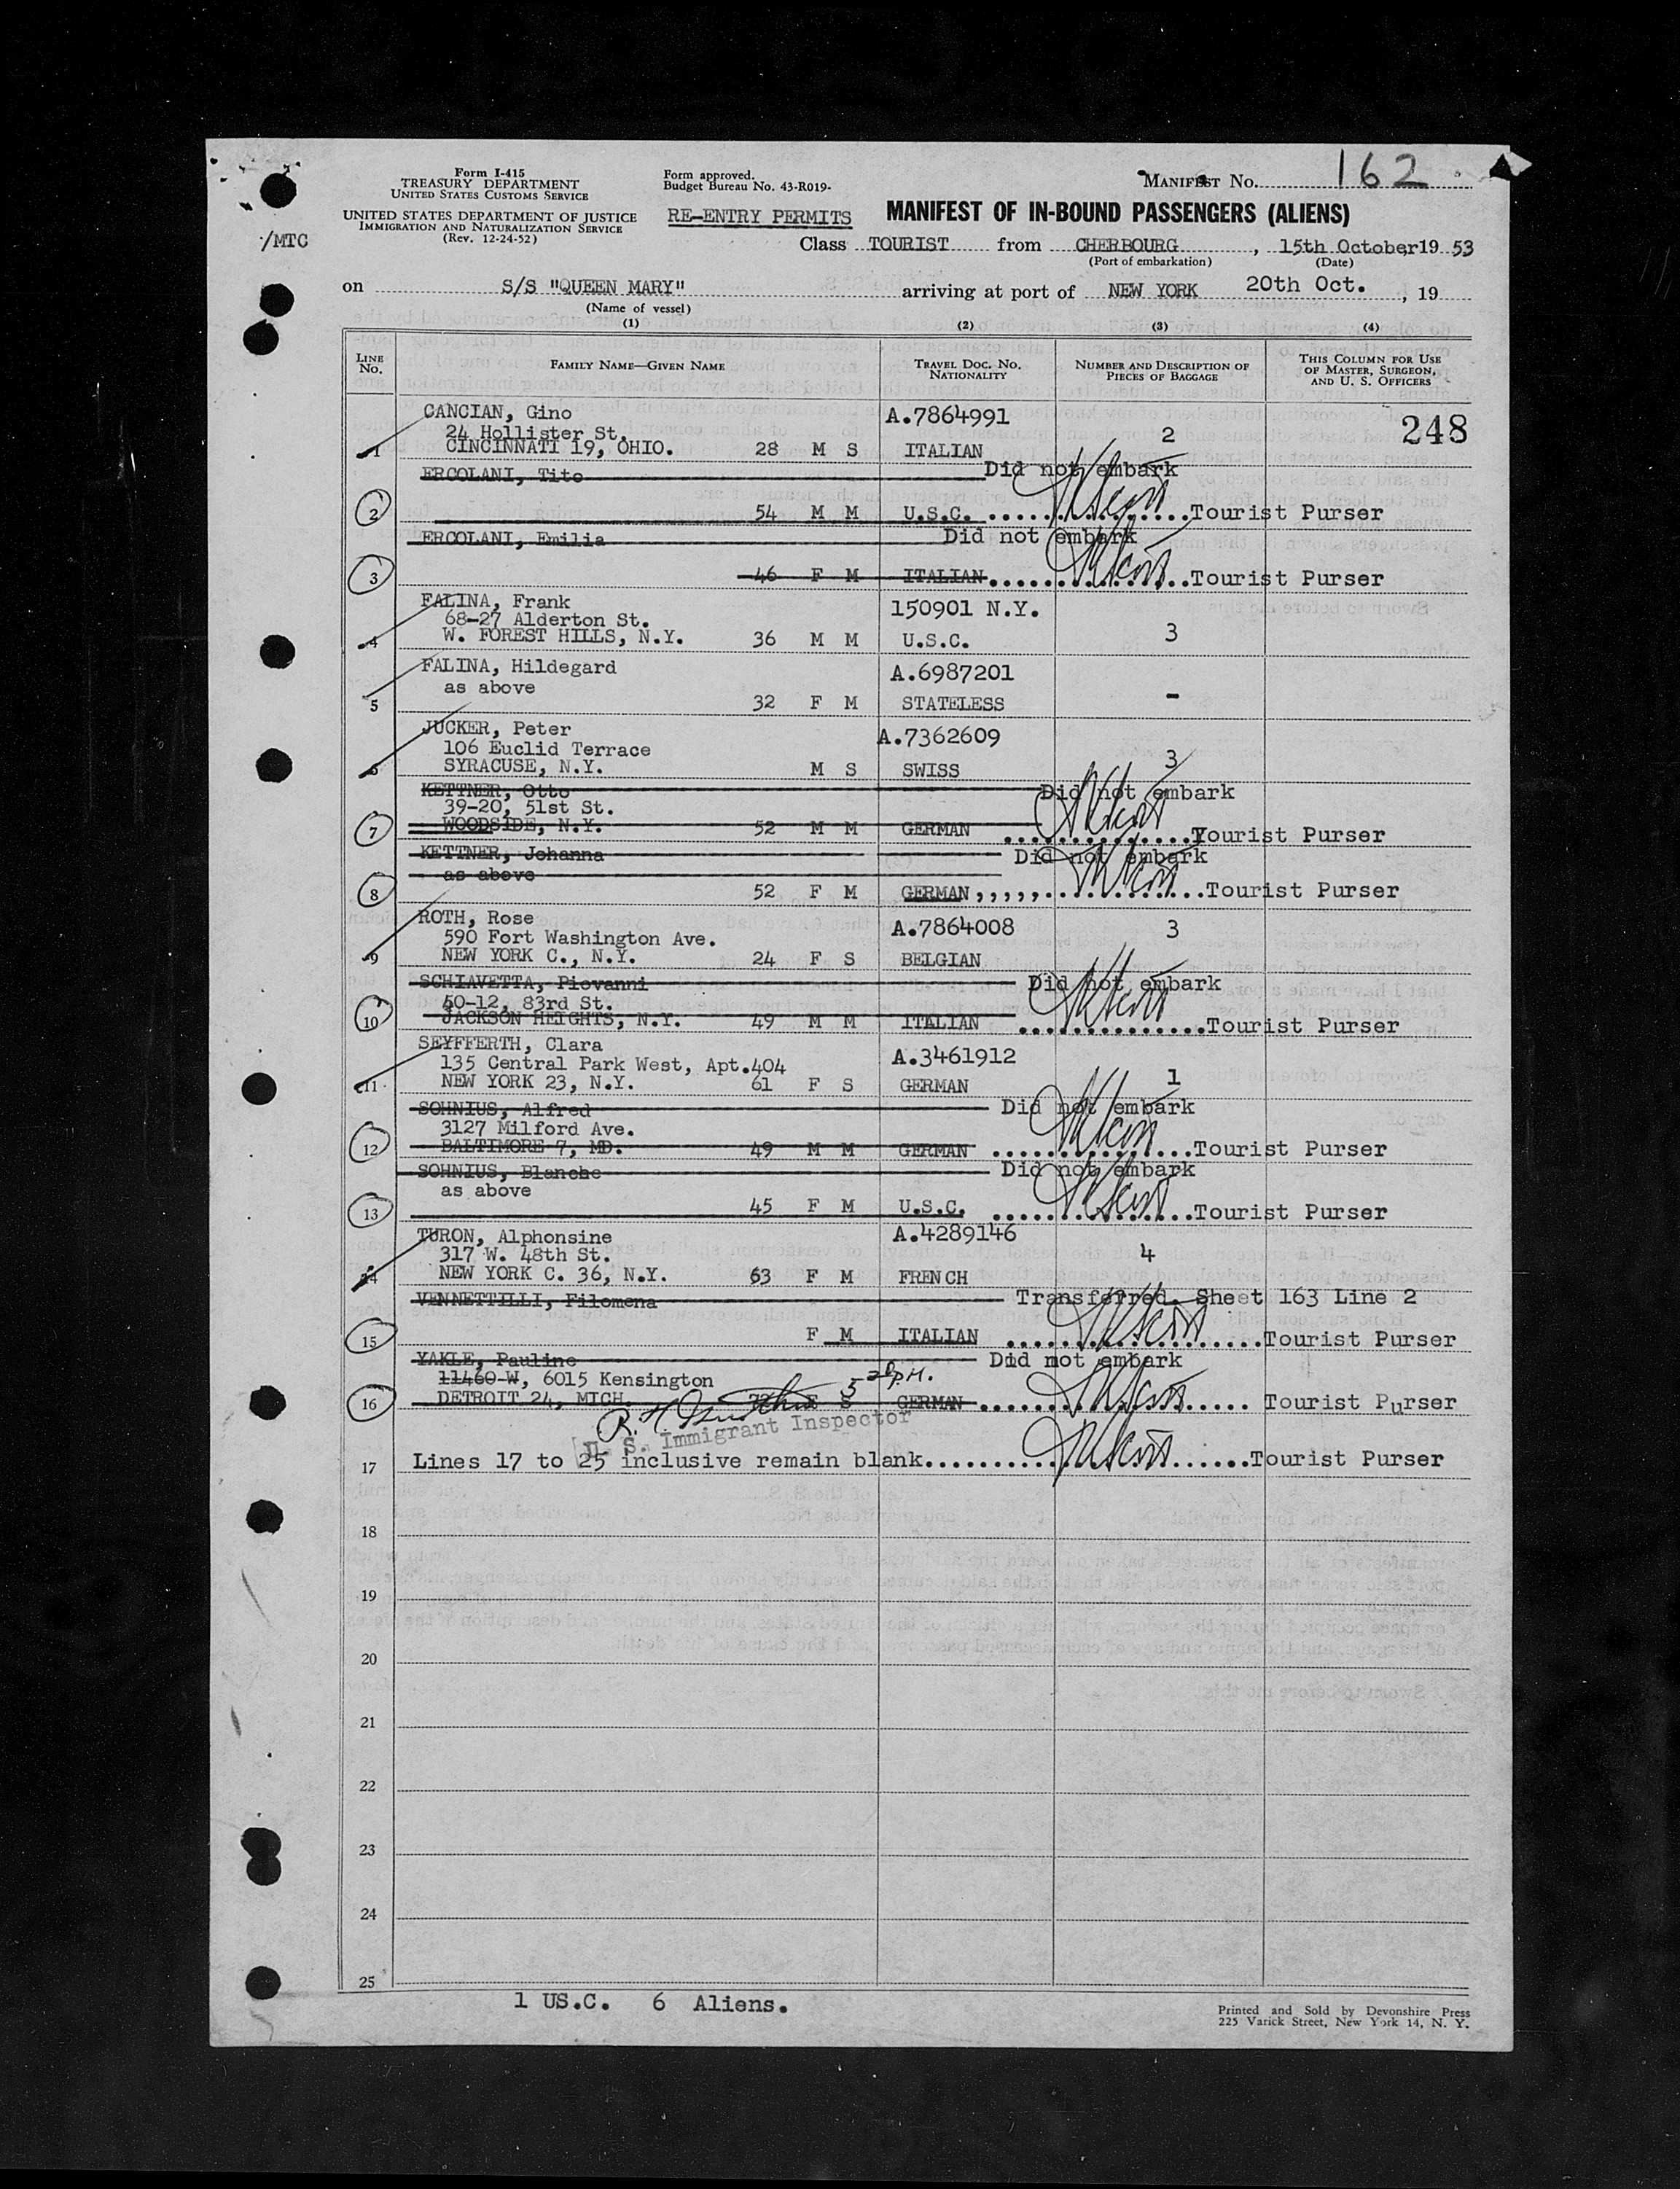 162
Form I-415
TREASURY DEPARTMENT
UNITED STATES CUSTOMS SERVICE
UNITED STATES DEPARTMENT OF JUSTICE
IMMIGRATION AND NATURALIZATION SERVICE
(Rev. 12-24-52)
/MTC
Form approved.
Budget Bureau No. 43-R019-
RE-ENTRY PERMITS
MANIFEST No.
MANIFEST OF IN-BOUND PASSENGERS (ALIENS)
Class TOURIST from CHERBOURG, 15th October, 1953
(Port of embarkation) (Date)
on S/S "QUEEN MARY" arriving at port of NEW YORK 20th Oct. , 19
(Name of vessel)
(1) (2) (3) (4)
LINE No. FAMILY NAME—GIVEN NAME TRAVEL DOC. NO. NATIONALITY NUMBER AND DESCRIPTION OF PIECES OF BAGGAGE THIS COLUMN FOR USE OF MASTER, SURGEON, AND U. S. OFFICERS
CANCIAN, Gino A.7864991 248
24 Hollister St. 2
1 CINCINNATI 19, OHIO. 28 M S ITALIAN
ERCOLANI, Tito Did not embark
2 54 M M U.S.C. Tourist Purser
ERCOLANI, Emilia Did not embark
3 46 F M ITALIAN Tourist Purser
FALINA, Frank 150901 N.Y.
68-27 Alderton St.
4 W. FOREST HILLS, N.Y. 36 M M U.S.C. 3
FALINA, Hildegard A.6987201
as above
5 32 F M STATELESS -
JUCKER, Peter A.7362609
106 Euclid Terrace
6 SYRACUSE, N.Y. M S SWISS 3
KETTNER, Otto Did not embark
39-20, 51st St.
7 WOODSIDE, N.Y. 52 M M GERMAN Tourist Purser
KETTNER, Johanna Did not embark
as above
8 52 F M GERMAN Tourist Purser
ROTH, Rose A.7864008 3
590 Fort Washington Ave.
9 NEW YORK C., N.Y. 24 F S BELGIAN
SCHIAVETTA, Piovanni Did not embark
50-12, 83rd St.
10 JACKSON HEIGHTS, N.Y. 49 M M ITALIAN Tourist Purser
SEYFFERTH, Clara A.3461912
135 Central Park West, Apt.404
11 NEW YORK 23, N.Y. 61 F S GERMAN 1
SOHNIUS, Alfred Did not embark
3127 Milford Ave.
12 BALTIMORE 7, MD. 49 M M GERMAN Tourist Purser
SOHNIUS, Blanche Did not embark
as above
13 45 F M U.S.C. Tourist Purser
TURON, Alphonsine A.4289146
317 W. 48th St. 4
14 NEW YORK C. 36, N.Y. 63 F M FRENCH
VENNETTILLI, Filomena Transferred. Sheet 163 Line 2
15 F M ITALIAN Tourist Purser
YAKLE, Pauline Did not embark
11460-W, 6015 Kensington P.M.
16 DETROIT 24, MICH. S GERMAN Tourist Purser
U. S. Immigrant Inspector
17 Lines 17 to 25 inclusive remain blank Tourist Purser
18
19
20
21
22
23
24
25
1 US.C. 6 Aliens.
Printed and Sold by Devonshire Press
225 Varick Street, New York 14, N. Y.